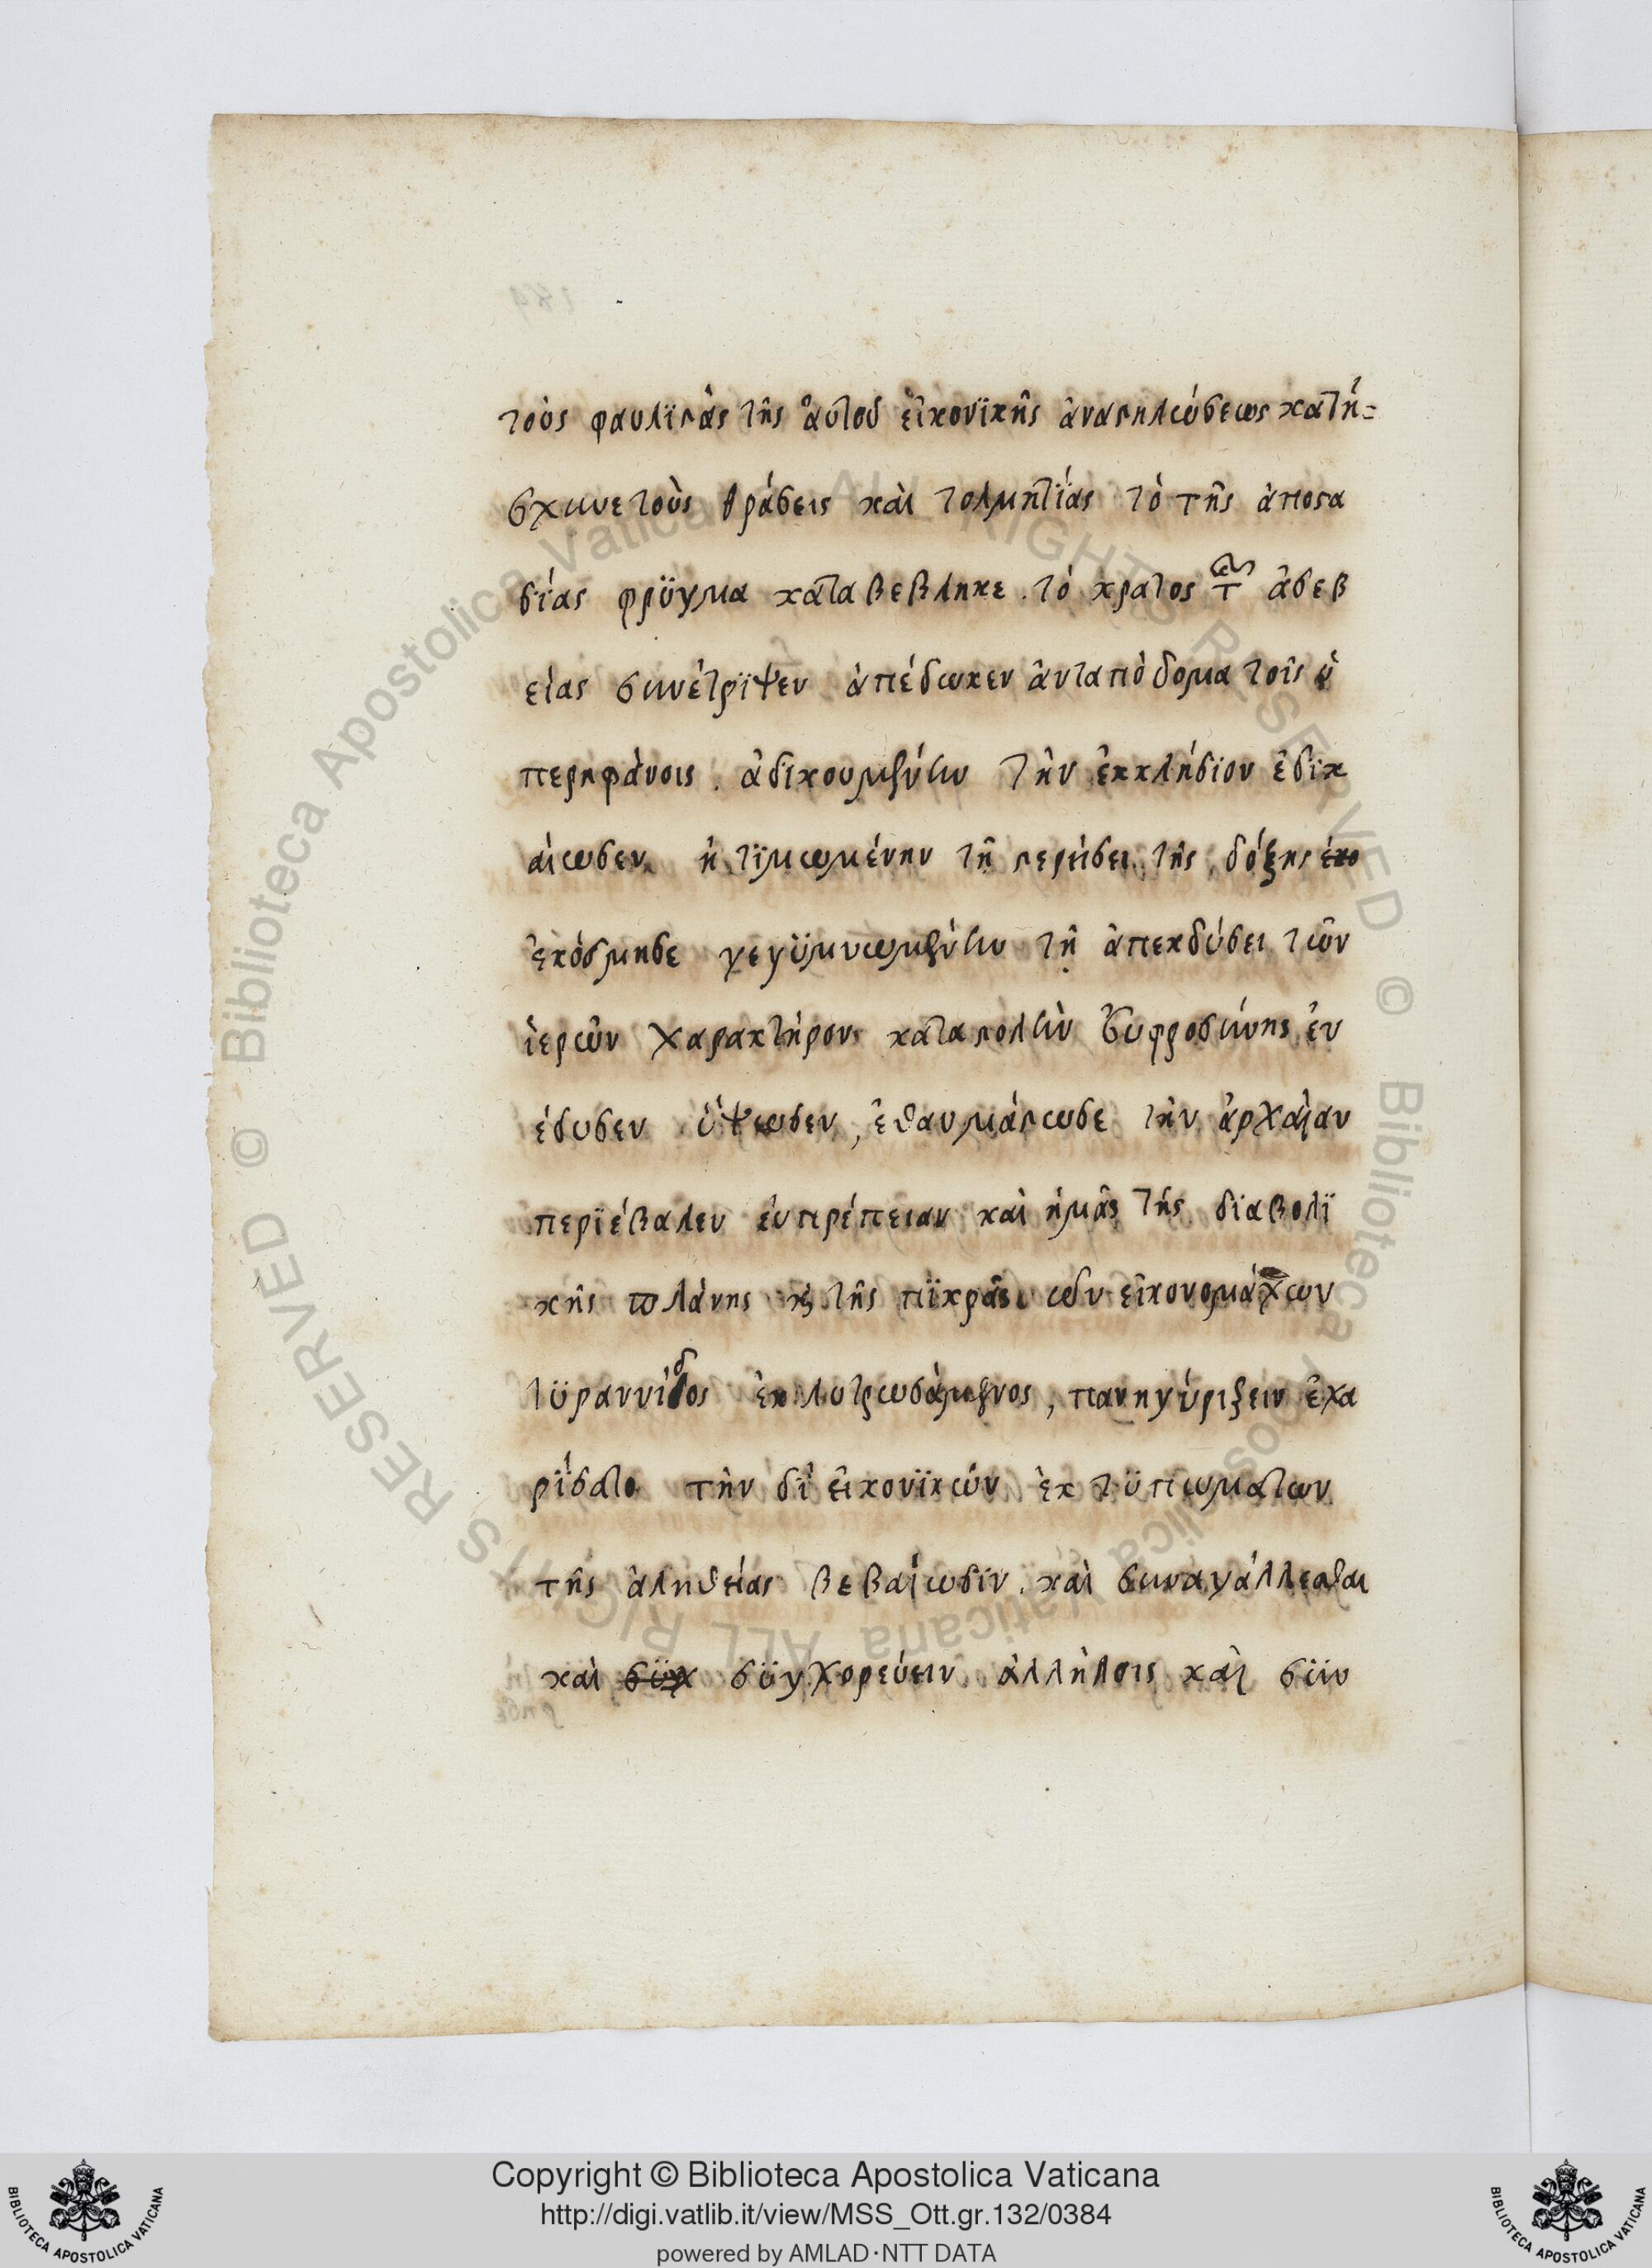 τοὺς φαυλιστὰς τῆς ἁυτοῦ εἰκονϊκῆς ἀναστηλώσεως κατή=
σχυνε τοὺς θράσεις καὶ τολμητΐας τὸ τῆς ἀποστα
σίας φρϋγμα καταβεβληκε. τὸ κρατος τῆς ἀσεβ
είας συνέτρϊψεν ἀπέδωκεν ἀνταπὸδομα τοῖς ὑ
περηφὰνοις. ἀδικουμένην τὴν ἐκκλήσϊον ἐδικ
αίωσεν ἠτϊμωμένην τῇ στερήσει τῆς δόξης
ἐκόσμησε γεγϋμνωμένην τῇ ἀπεκδύσει τῶν
ἱερῶν χαρακτήρους καταστολὴν ἐυφροσύνης ἐν
έδυσεν ὕψωσεν, ἐθαυμάστωσε τὴν ἀρχαίαν
περϊέβαλεν ἐυπρέπειαν καὶ ἡμᾶς τῆς διαβολϊ
κῆς πλάνης κ τῆς πϊκρᾶς ων εἰκονομάχων
τϋραννίδος ἐκλυτρωσάμενος, πανηγύριζειν ἐχα
ρΐσατο τὴν δι εἰκονϊκῶν ἐκτϋπωματων
τῆς ἀληθείας βεβαίωσϊν. καὶ συναγάλλεσθαι
καὶ σϋχ σϋγχορεύειν ἀλλήλοις καὶ σϋν
Copyright © Biblioteca Apostolica Vaticana
http://digi.vatlib.it/view/MSS_Ott.gr.132/0384
powered by AMLAD·NTT DATA
BIBLIOTECA APOSTOLICA VATICANA
BIBLIOTECA APOSTOLICA VATICANA
© Biblioteca Apostolica Vaticana ALL RIGHTS RESERVED © Biblioteca Apostolica Vaticana ALL RIGHTS RESERVED